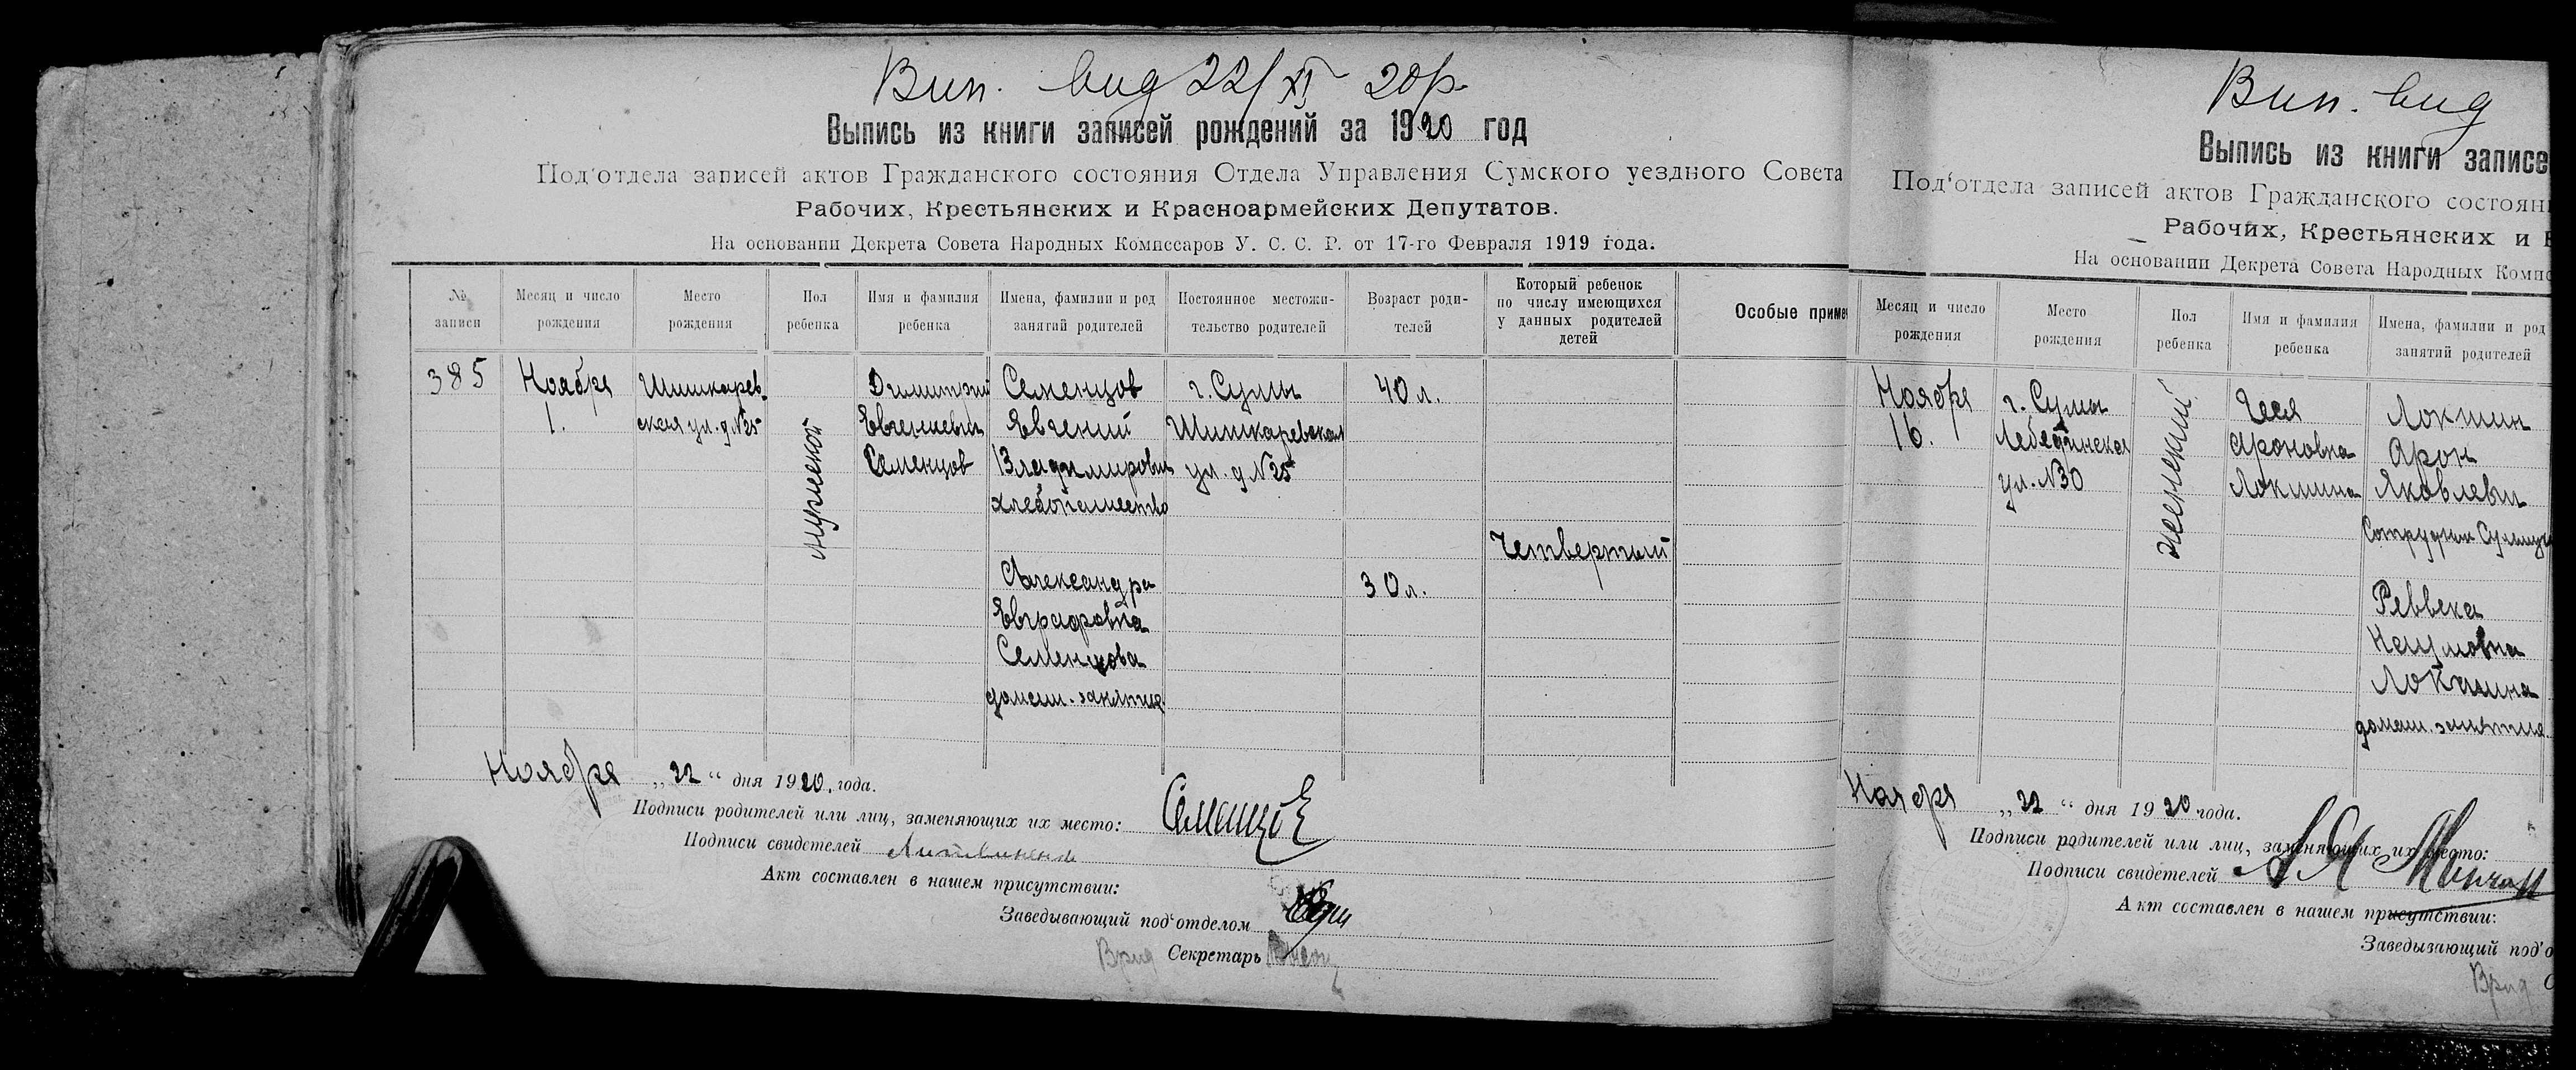 Вип. вид 22/XI 20р.
Выпись из книги записей рождений за 1920 год
Под'отдела записей актов Гражданского состояния Отдела Управления Сумского уездного Совета
Рабочих, Крестьянских и Красноармейских Депутатов.
На основании Декрета Совета Народных Комиссаров У. С. С. Р. от 17-го Февраля 1919 года.
№ записи
Месяц и число рождения
Место рождения
Пол ребенка
Имя и фамилия ребенка
Имена, фамилии и род занятий родителей
Постоянное местожи-
тельство родителей
Возраст роди-
телей
Который ребенок
по числу имеющихся
у данных родителей
детей
Особые приме
385
Ноября
1.
Шишкарев-
ская ул. д. №25
мужской
Димитрий
Евгениевич
Семенцов
Семенцов
Евгений
Владимирович
хлебопашество
Александра
Евграфовна
Семенцова
домаш. занятие.
г. Сумы
Шишкаревская
ул. д №25
40 л.
30 л.
Четвертый
Ноября „22“ дня 1920. года.
Подписи родителей или лиц, заменяющих их место: Семенцов
Подписи свидетелей Литвиненко
Акт составлен в нашем присутствии:
Заведывающий под'отделом
Врид Секретарь
Вип. вид
Выпись из книги записе
Под'отдела записей актов Гражданского состоян
Рабочих, Крестьянских и
На основании Декрета Совета Народных Комис
Месяц и число
рождения
Место
рождения
Пол
ребенка
Имя и фамилия
ребенка
Имена, фамилии и род
занятий родителей
Ноября
16.
г. Сумы
Лебединская
ул. №30
женский
Геся
Ароновна
Локшина
Локшин
Арон
Яковлевич
Реввека
Наумовна
Локшина
домаш. занятие.
Ноября „22“ дня 1920 года.
Подписи родителей или лиц, заменяющих их место:
Подписи свидетелей
Акт составлен в нашем присутствии:
Заведывающий под'о
Врид С